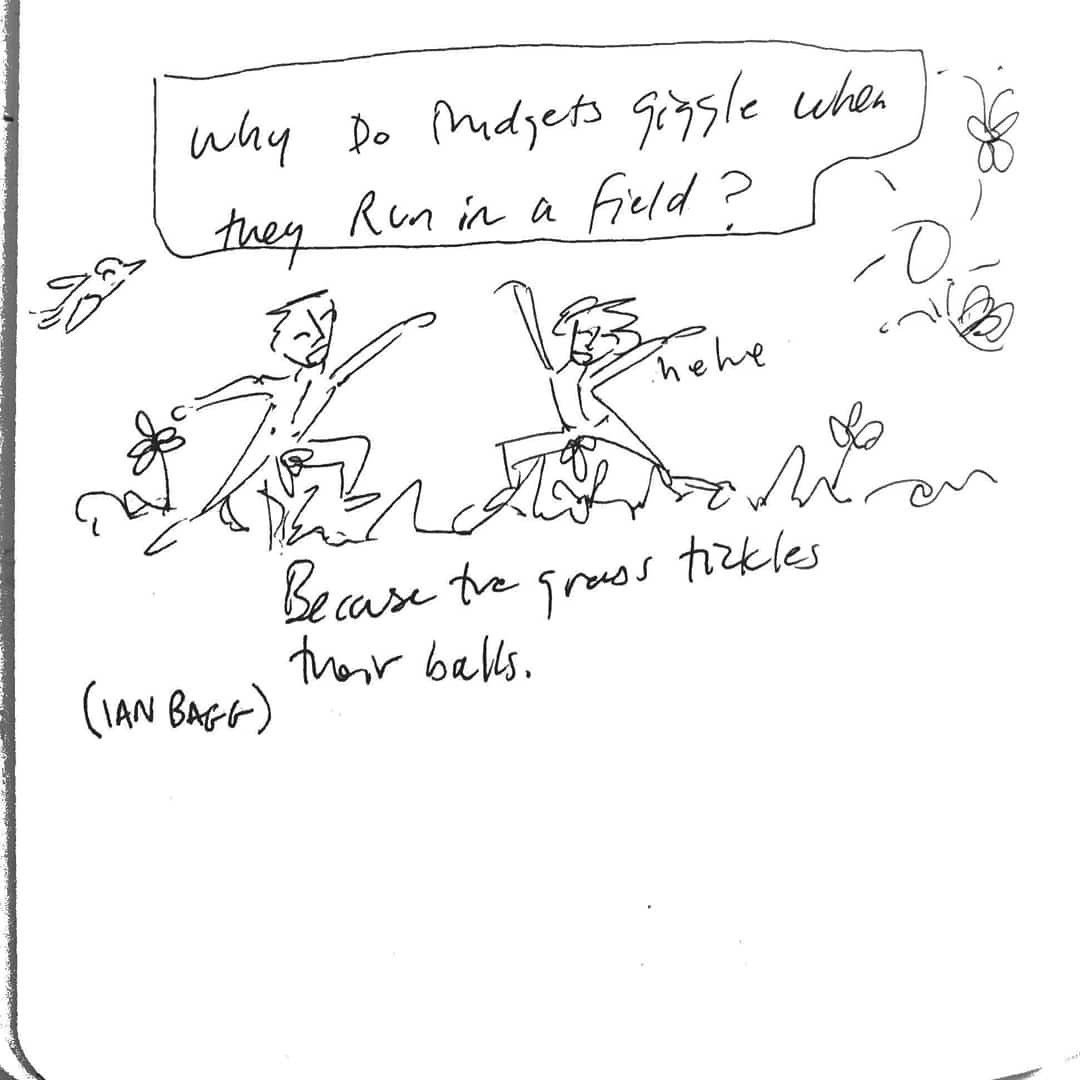 Why Do Midgets giggle when
they Run in a field?
hehe
Because the grass tickles
their balls.
(IAN BAGG)